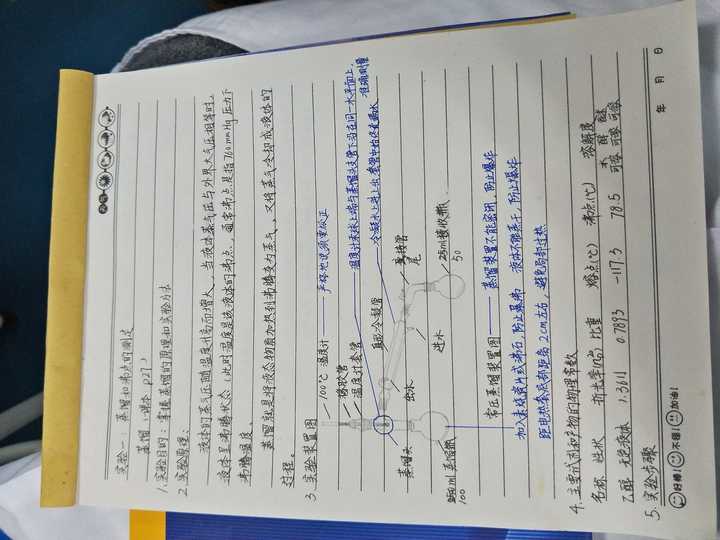 实验一 蒸馏和沸点的测定
蒸馏 (课本 P27)
1. 实验目的：掌握蒸馏的原理和实验方法
2. 实验原理：
液体的蒸气压随温度升高而增大，当液体蒸气压与外界大气压相等时。
液体呈沸腾状态（此时温度是该液体的沸点。通常沸点是指760mmHg压力下
沸腾温度。
蒸馏就是将液态物质加热到沸腾变为蒸气，又将蒸气冷却成液体的
过程。
3. 实验装置图
100℃ 温度计 —— 严格地说须量校正
橡胶管
温度计套管 —— 温度计末球上端与蒸馏头支管下沿在同一水平面上，准确测量
冷凝水下进上出
直形冷凝管
蒸馏头
出水
进水
接管
尾
25ml接收瓶
50
ml 蒸馏瓶
100
常压蒸馏装置图 —— 蒸馏装置不能密闭，防止爆炸
加入未烧瓷片或沸石，防止暴沸 液体不能蒸干，防止爆炸
距电热套底部距离2cm左右，避免局部过热
4. 主要试剂和产物的物理常数
名称 性状 折光率 比重 熔点(℃) 沸点(℃) 溶解度
水 醇 醚
乙醇 无色液体 1.3611 0.7893 -117.3 78.5 可溶 可溶 可溶
5. 实验步骤
好棒! 不错! 加油!
年 月 日